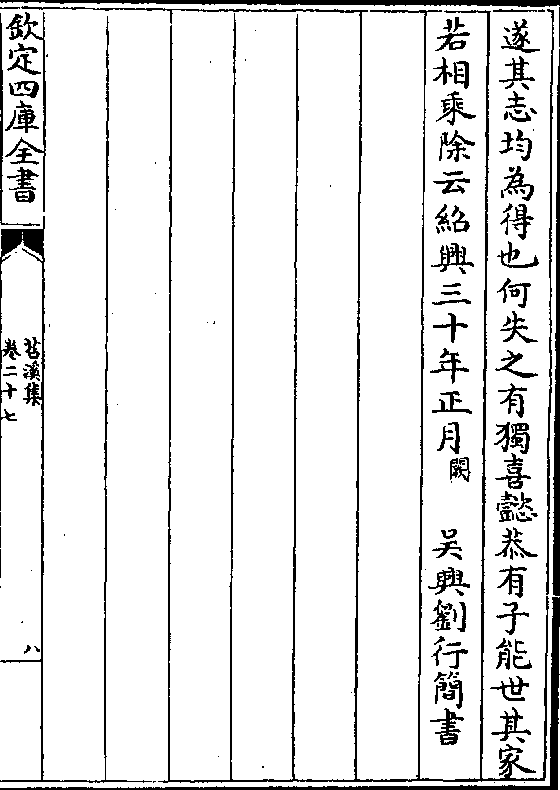 遂其志均為得也何失之有獨喜懿恭有子能世其家
若相乘除云紹興三十年正月闕　吳興劉行簡書
欽定四庫全書
苕溪集
卷二十七
八